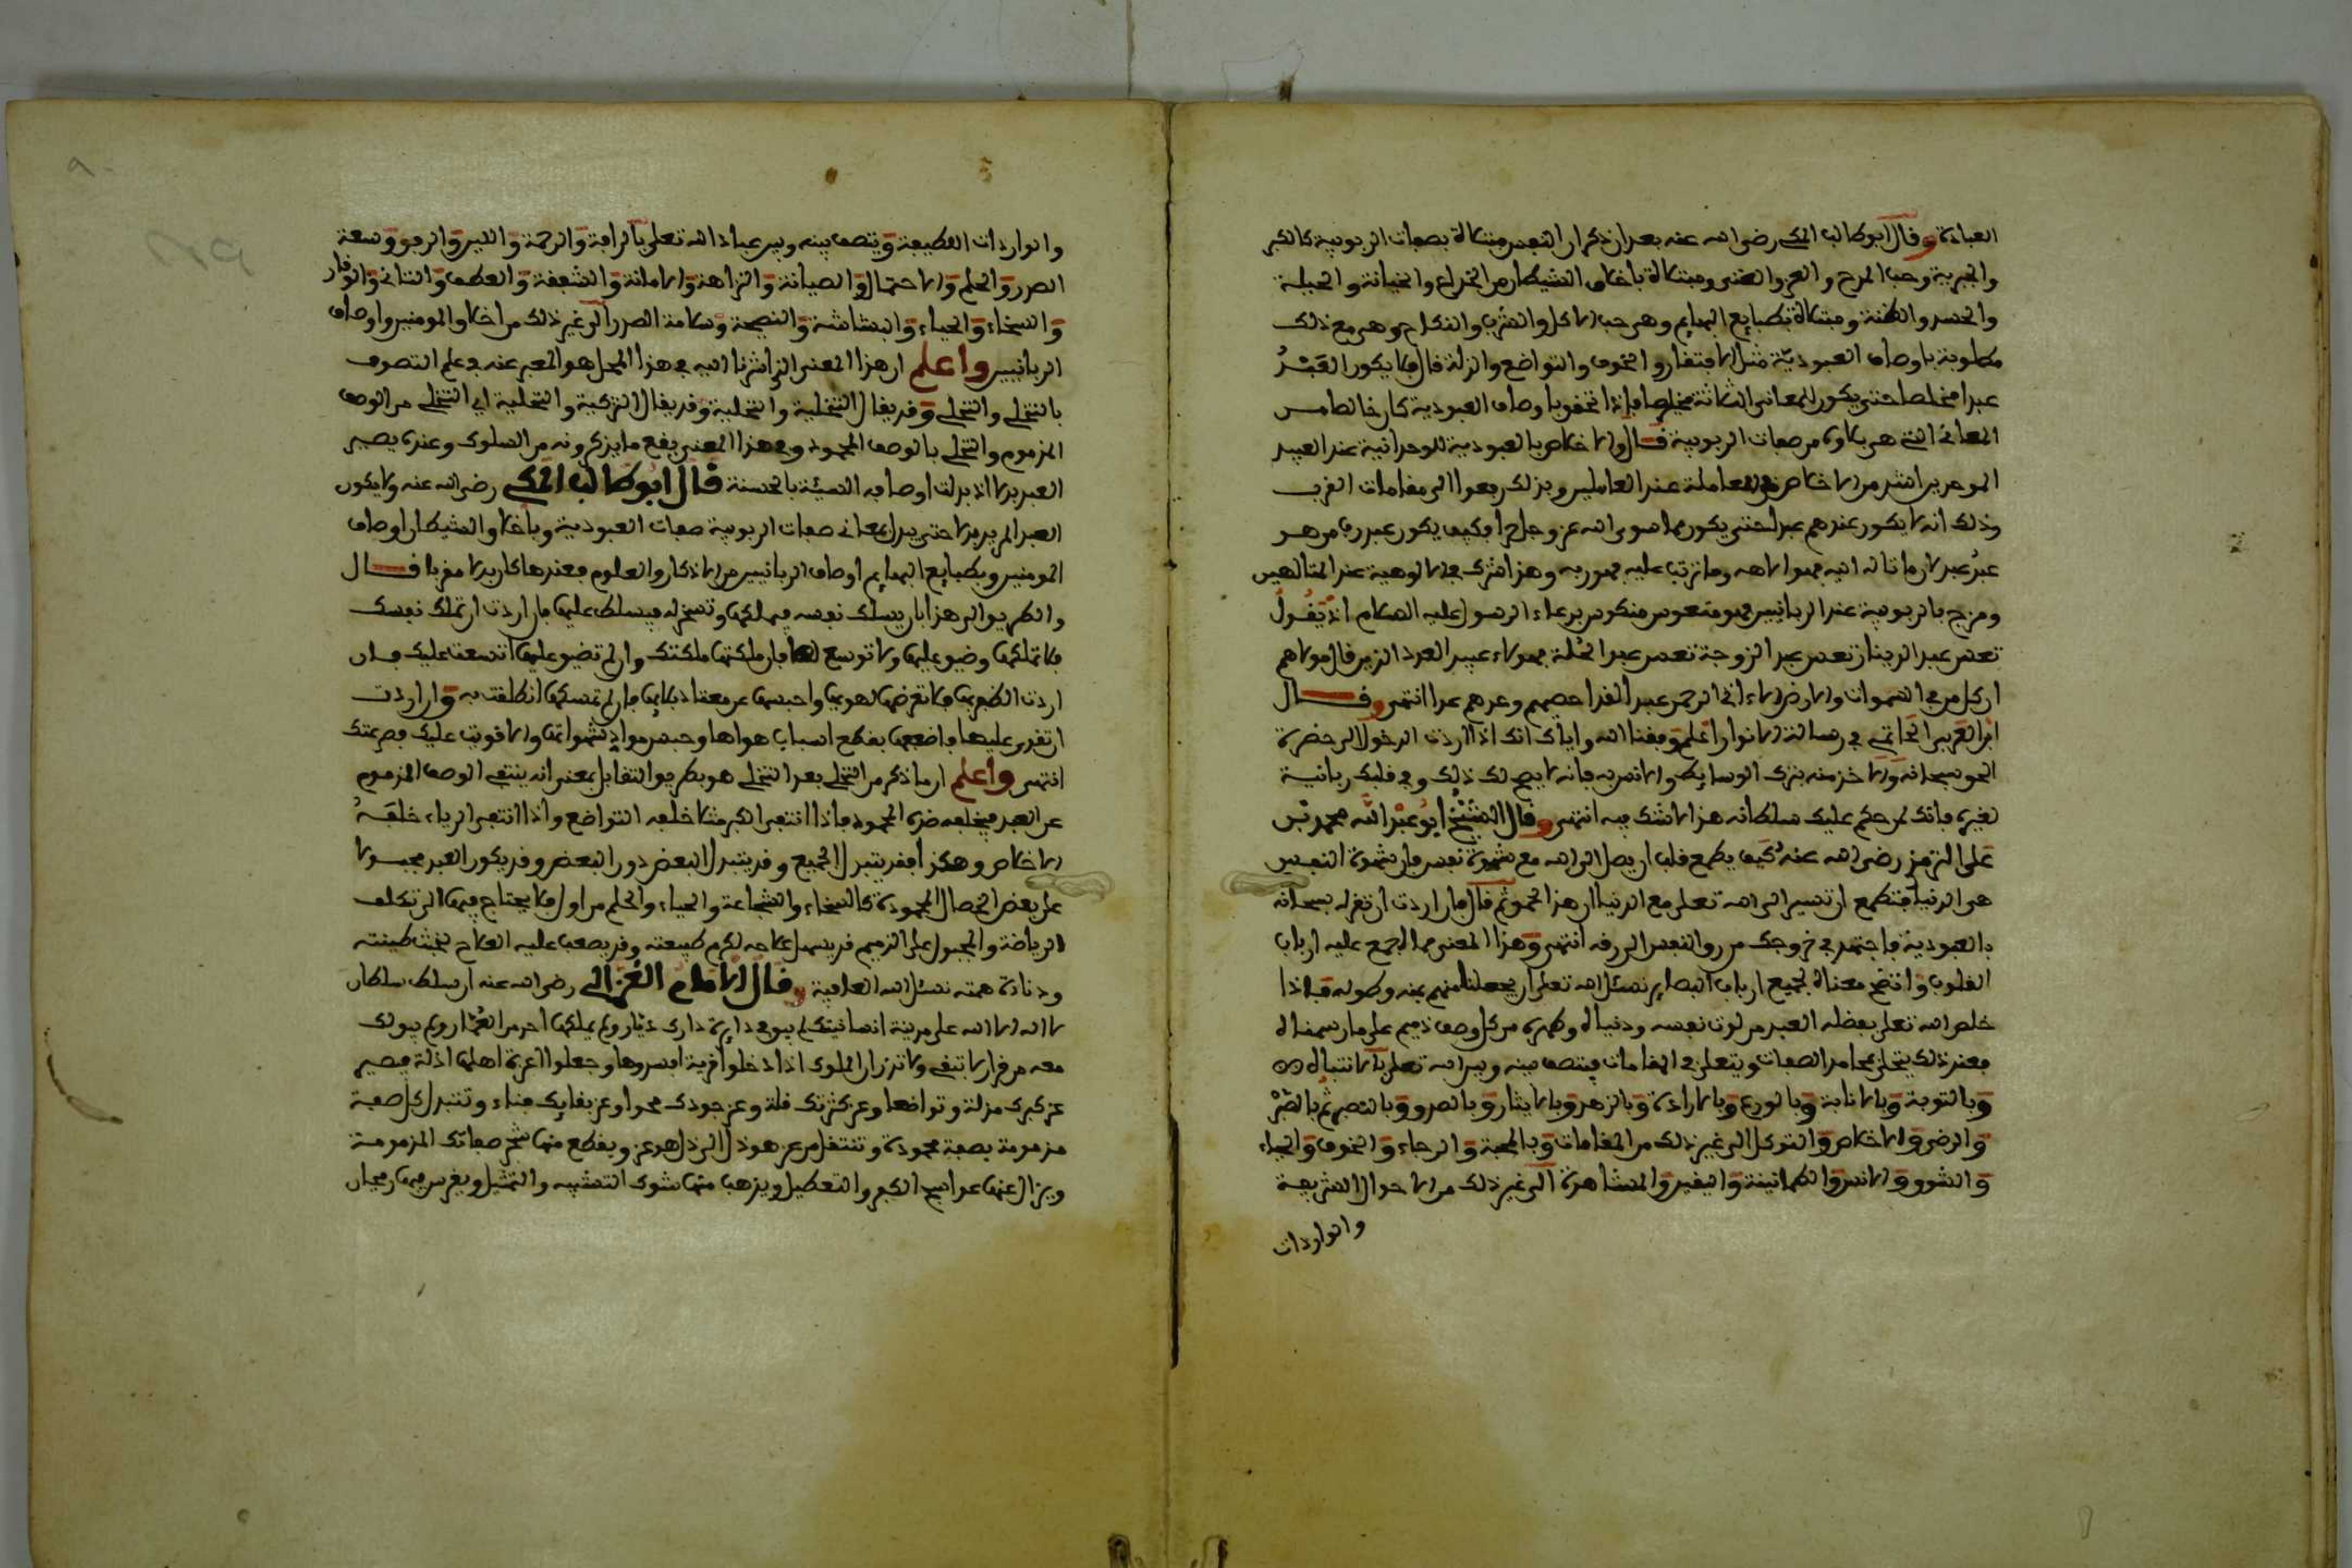 العبادة وقال ابو طالب المكي رضي الله عنه بعد ان ذكر ان النفس مبتلاة بصفات الربوبية كالكبر
والجبرية وحب المدح والعز والغنى ومبتلاة باخلاق الشيطان من الخداع والخيانة والحيلة
والحسد والظنة ومبتلاة بطبايع البهايم وهي حب الاكل والشرب والنكاح وهي مع ذلك
مطلوبة باوصاف العبودية مثل الافتقار والخوف والتواضع والذلة قال فلا يكون العبد
عبدا مخلصا حتى يكون للمعاني الثلاثة مخلصا فاذا تحقق باوصاف العبودية كان خالصا من
المعاني التي هي بلاوه من صفات الربوبية قال والاخلاص بالعبودية للوحدانية عند العبيد
الموحدين اشد من الاخلاص في المعاملة عند العاملين وبذلك رفعوا الى مقامات القرب
وذلك انه لا يكون عندهم عبدا حتى يكون مما سوى الله عز وجل حرا وكيف يكون عبد رب من هو
عبد عبد لان ما تاله اليه فهو الاهه وما ترتب عليه فهو ربه وهذا شرك في الالوهية عند المتالهين
ومزج بالربوبية عند الربانيين فهو متعوس منكوس بدعاء الرسول عليه السلام اذ يقول
تعس عبد الدينار تعس عبد الزوجة تعس عبد الحلة فهولاء عبيد العدد الذين قال مولاهم
ان كل من في السموات والارض الا اتي الرحمن عبدا لقد احصيهم وعدهم عدا انتهى وقال
ابن العربي الحاتمي في رسالة الانوار اعلم وفقنا الله واياك انك اذا اردت الدخول الى حضرة
الحق سبحانه والاخذ منه بترك الوسايط والانس به فانه لا يصح لك ذلك وفي قلبك ربانية
لغيره فانك لمن حكم عليك سلطانه هذا لا شك فيه انتهى وقال الشيخ ابو عبد الله محمد بن
علي الترمذي رضي الله عنه كيف يطمع قلب ان يصل الى الله مع شهوة نفس فان شهوة النفس
هي الدنيا فتطمع ان تسير الى الله تعلى مع الدنيا ان هذا لحمق ثم قال فان اردت ان تقر له سبحانه
بالعبودية فاجتهد في خروجك من رق النفس الى رقه انتهى وهذا المعنى مما اجمع عليه ارباب
القلوب واتضح معناه لجميع ارباب البصاير نسئل الله تعلى ان يجعلنا منهم بمنه وطوله فاذا
خلص الله تعلى بفضله العبد من لوث نفسه ودنياه وطهره من كل وصف ذميم على ما رسمناه
فعند ذلك يتحلى بمحامد الصفات ويتعلى في المقامات فيتصف بينه وبين الله تعلى بالانتباه
وبالتوبة وبالانابة وبالورع وبالارادة وبالزهد وبالايثار وبالصدق وبالتصبر ثم بالصبر
والرضى والاخلاص والتوكل الى غير ذلك من المقامات وبالمحبة والرجاء والخوف والحياء
والشوق والانس والطمانينة واليقين والمشاهدة الى غير ذلك من الاحوال الشريفة
والواردات
والواردات اللطيفة ويتصف بينه وبين عباد الله تعلى بالرافة والرحمة واللين والرفق وسعة
الصدر والحلم والاحتمال والصيانة والنزاهة والامانة والشفقة والعطف والتاني والوقار
والسخاء والحياء والبشاشة والنصيحة وسلامة الصدر الى غير ذلك من اخلاق المومنين واوصاف
الربانيين واعلم ان هذا المعنى الذي اشرنا اليه في هذا المحل هو المعبر عنه في علم التصوف
بالتخلي والتحلي وقد يقال التخلية والتحلية وقد يقال التزكية والتحلية اي التخلي من الوصف
المذموم والتحلي بالوصف المحمود وفي هذا المعنى يقع ما يذكرونه من السلوك وعنده يصير
العبد بدلا اذ بدلت اوصافه السيئة بالحسنة قال ابو طالب المكي رضي الله عنه ولا يكون
العبد المريد بدلا حتى يبدل بمعاني صفات الربوبية صفات العبودية وباخلاق الشيطان اوصاف
المومنين وبطبايع البهايم اوصاف الربانيين من الاذكار والعلوم فعندها كان بدلا مقربا قال
والطريق الى هذا بان يسلك نفسه فيملكها وتسخر له فيسلط عليها فان اردت ان تملك نفسك
فلا تملكها وضيق عليها ولا توسع لها فان ملكتها ملكتك وان لم تضيق عليها اتسعت عليك فان
اردت الظفر بها فلا تعرضها لهوها واحبسها عن معتاد بلايها فان لم تمسكها انطلقت به وان اردت
ان تقوى عليها فاضعفها بقطع اسباب هواها وحبس مواد شهواتها والا قويت عليك فصرعتك
انتهى واعلم ان ما ذكر من التحلي بعد التخلي هو بطريق التقابل بمعنى انه ينتفي الوصف المذموم
عن العبد فيخلفه ضده المحمود فاذا انتفى الكبر مثلا خلفه التواضع واذا انتفى الرياء خلفه
الاخلاص وهكذا فقد يتبدل الجميع وقد يتبدل البعض دون البعض وقد يكون العبد مجبولا
على بعض الخصال المحمودة كالسخاء والشجاعة والحياء والحلم من اول فلا يحتاج فيها الى تكلف
الرياضة والمجبول على الذميم قد يسهل علاجه لكرم طبيعته وقد يصعب عليه العلاج لخبث طينته
ودناءة همته نسئل الله العافية وقال الامام الغزالي رضي الله عنه ان سلط سلطان
لا اله الا الله على مدينة انسانيتك لم يبق في دايرة دارك ديار ولم يملكها احد من الغمار ولم يبق لك
معه من قرار لا تبقي ولا تذر ان الملوك اذا دخلوا قرية افسدوها وجعلوا اعزة اهلها اذلة فيصير
عز كبرك مذلة وتواضعا وعز كثرتك قلة وعز جودك محوا وعز بقايك فناء وتتبدل كل صفة
مذمومة بصفة محمودة وتنتقل من عز هو ذل الى ذل هو عز ويقطع منها شجر صفاتك المذمومة
ويزال عنها عواسج الكبر والتعطيل ويذهب منها شوك التشبيه والتمثيل ويغرس فيها ريحان